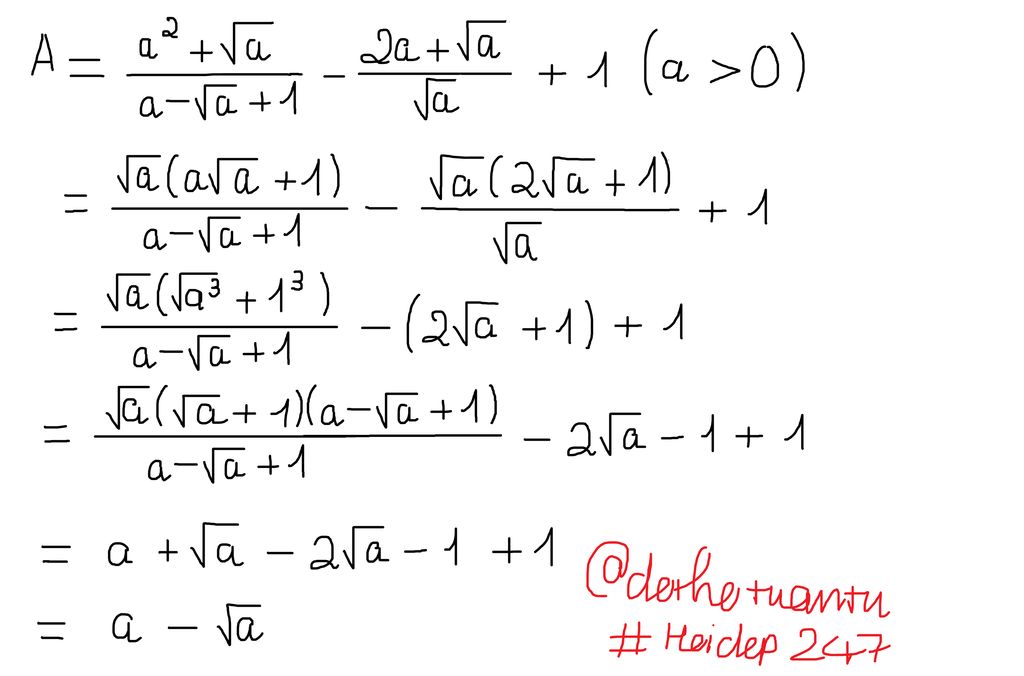 A = \frac{a^2 + \sqrt{a}}{a - \sqrt{a} + 1} - \frac{2a + \sqrt{a}}{\sqrt{a}} + 1 (a > 0)
= \frac{\sqrt{a}(a\sqrt{a} + 1)}{a - \sqrt{a} + 1} - \frac{\sqrt{a}(2\sqrt{a} + 1)}{\sqrt{a}} + 1
= \frac{\sqrt{a}(\sqrt{a}^3 + 1^3)}{a - \sqrt{a} + 1} - (2\sqrt{a} + 1) + 1
= \frac{\sqrt{a}(\sqrt{a} + 1)(a - \sqrt{a} + 1)}{a - \sqrt{a} + 1} - 2\sqrt{a} - 1 + 1
= a + \sqrt{a} - 2\sqrt{a} - 1 + 1
= a - \sqrt{a}
# Heidep 247